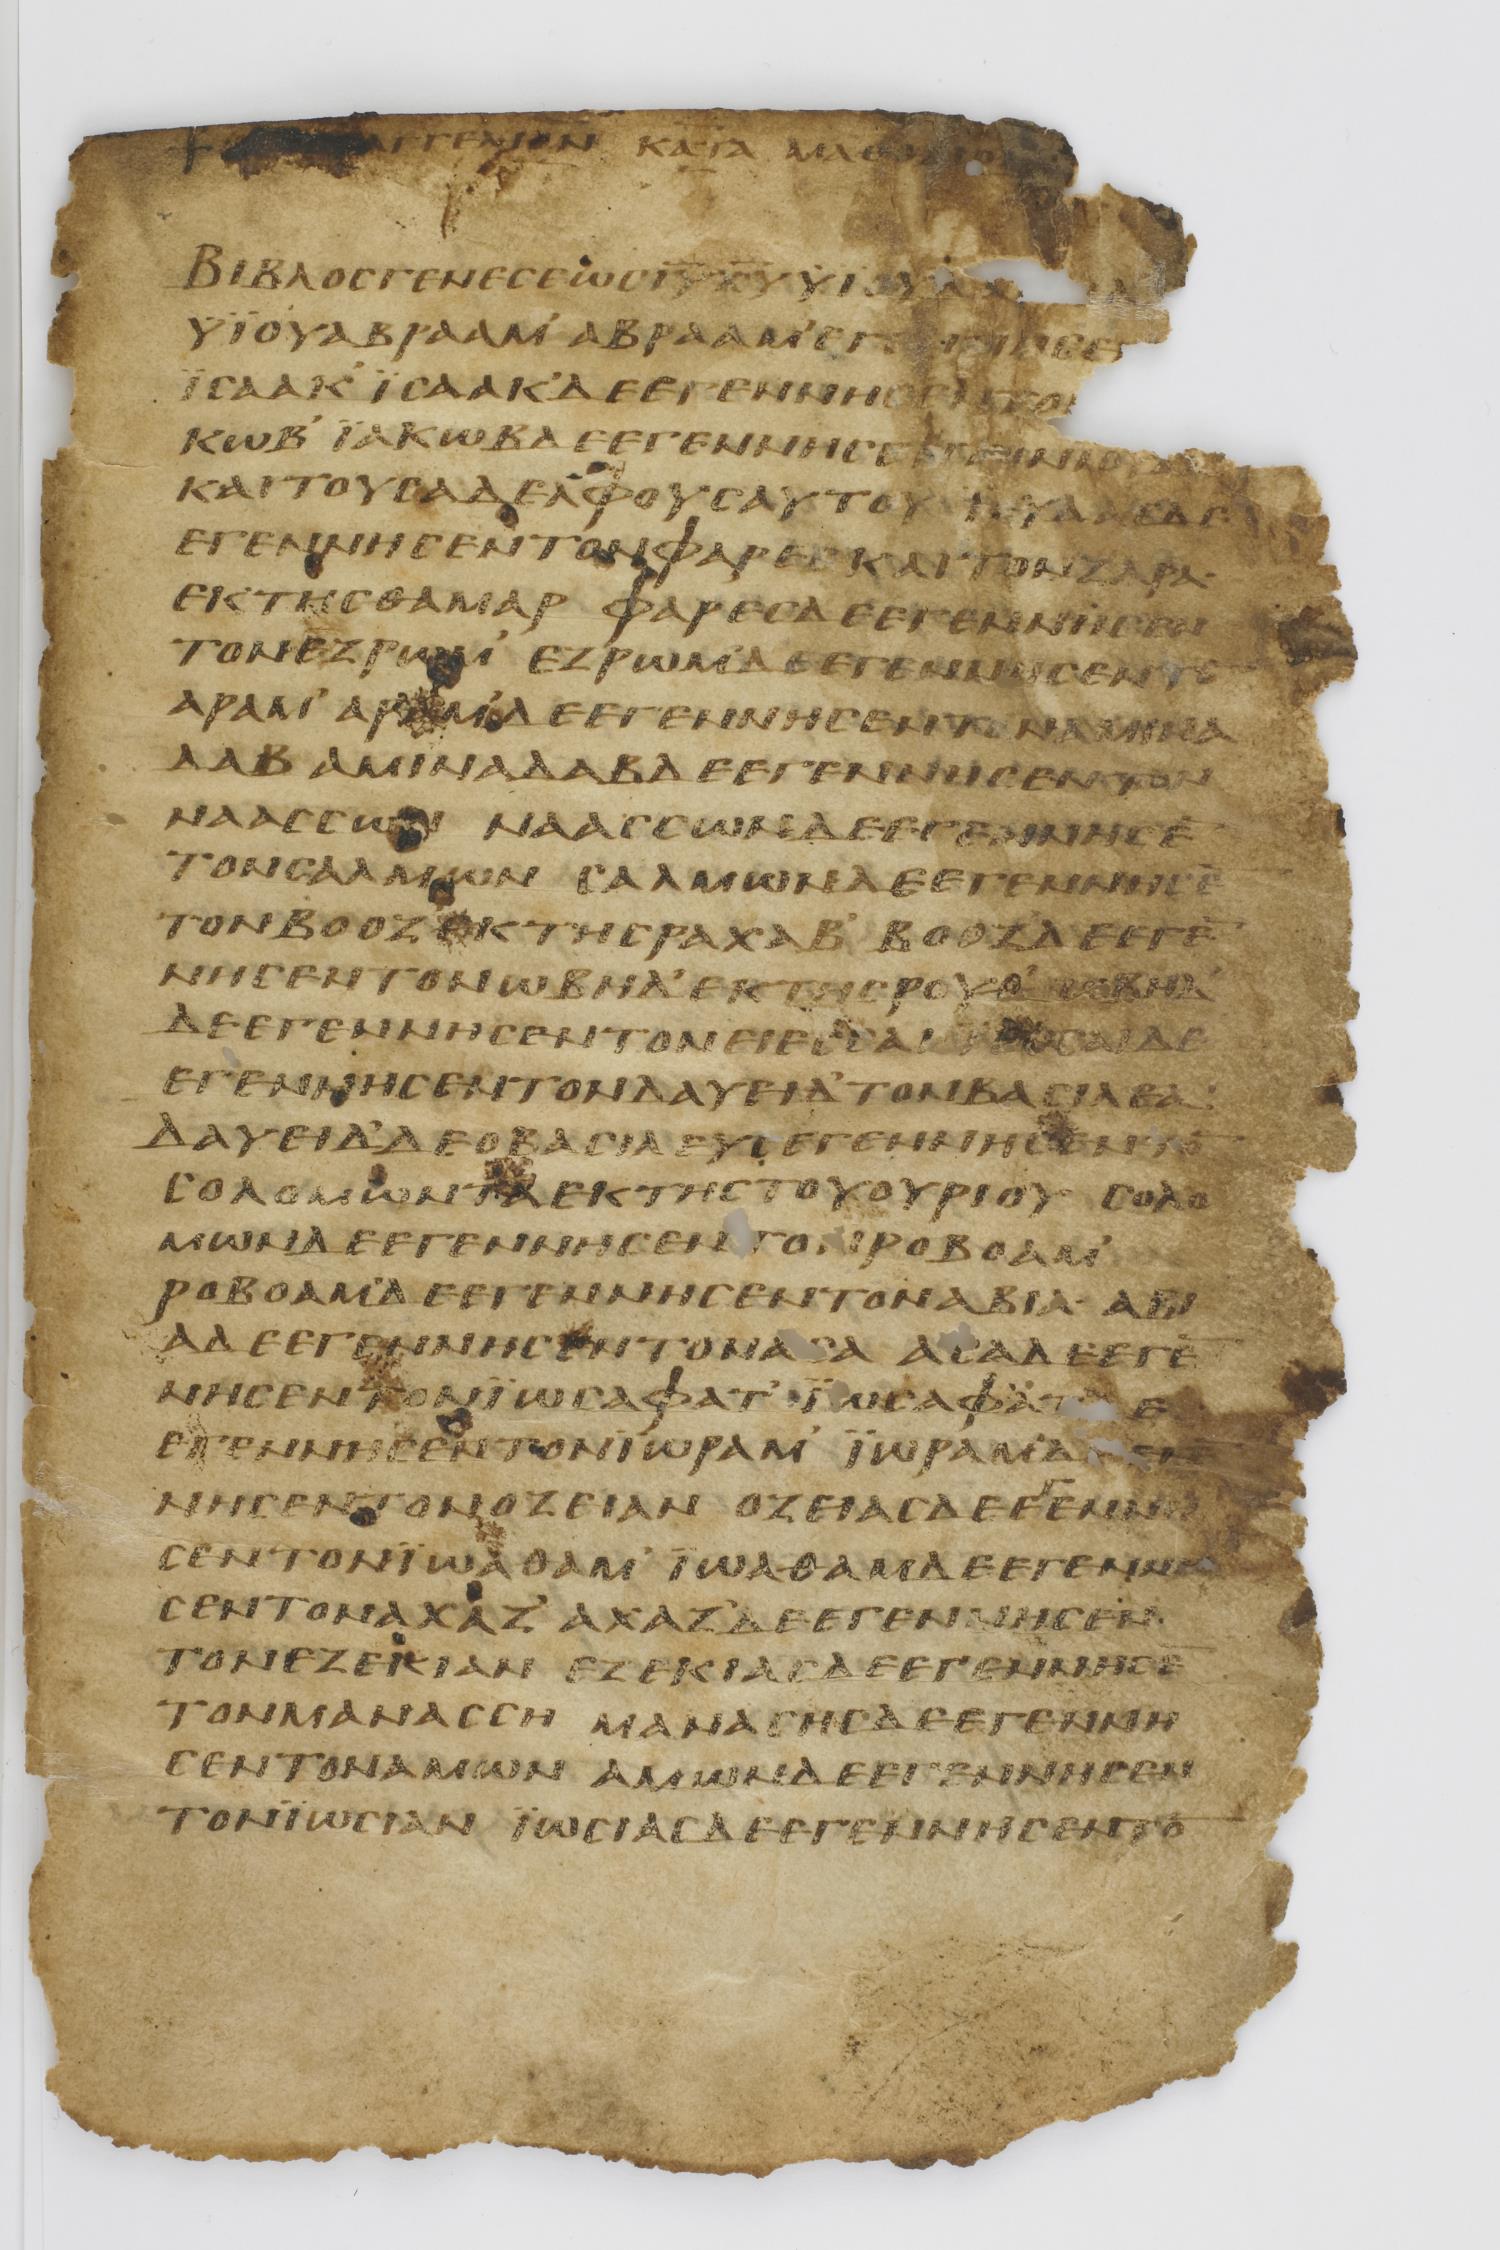 ΚΑΤΑ
ΒΙΒΛΟСΓΕΝΕСΕΩСΙΥΧΥΥΪΟΥ
ΥΪΟΥΑΒΡΑΑΜ' ΑΒΡΑΑΜ'
ΪСΑΑΚ' ΪСΑΑΚ'ΔΕΕΓΕΝΝΗСΕΝΤΟΝ
ΚΩΒ' ΪΑΚΩΒΔΕΕΓΕΝΝΗСΕΝΤΟΝΙΟΥΔΑ
ΚΑΙΤΟΥСΑΔΕΛΦΟΥСΑΥΤΟΥ ΙΟΥΔΑСΔΕ
ΕΓΕΝΝΗСΕΝΤΟΝΦΑΡΕСΚΑΙΤΟΝΖΑΡΑ·
ΕΚΤΗСΘΑΜΑΡ ΦΑΡΕСΔΕΕΓΕΝΝΗСΕΝ
ΤΟΝΕΖΡΩΜ' ΕΖΡΩΜ'ΔΕΕΓΕΝΝΗСΕΝΤΟ
ΑΡΑΜ' ΑΡΑΜ'ΔΕΕΓΕΝΝΗСΕΝΤΟΝΑΜΙΝΑ
ΔΑΒ ΑΜΙΝΑΔΑΒΔΕΕΓΕΝΝΗСΕΝΤΟΝ
ΝΑΑССΩΝ ΝΑΑССΩΝΔΕΕΓΕΝΝΗСΕ̅
ΤΟΝСΑΛΜΩΝ СΑΛΜΩΝΔΕΕΓΕΝΝΗСΕ̅
ΤΟΝΒΟΟΖ'ΕΚΤΗСΡΑΧΑΒ' ΒΟΟΖ'ΔΕΕΓΕ̅
ΝΗСΕΝΤΟΝΩΒΗΔ'ΕΚΤΗСΡΟΥΘ' ΩΒΗΔ'
ΔΕΕΓΕΝΝΗСΕΝΤΟΝΕΙΕССΑΙ ΙΕССΑΙΔΕ
ΕΓΕΝΝΗСΕΝΤΟΝΔΑΥΕΙΔ'ΤΟΝΒΑСΙΛΕΑ·
ΔΑΥΕΙΔ'ΔΕΟΒΑСΙΛΕΥСΕΓΕΝΝΗСΕΝΤΟ̅
СΟΛΟΜΩΝΤΑΕΚΤΗСΤΟΥΟΥΡΙΟΥ СΟΛΟ
ΜΩΝΔΕΕΓΕΝΝΗСΕΝΤΟΝΡΟΒΟΑΜ'
ΡΟΒΟΑΜ'ΔΕΕΓΕΝΝΗСΕΝΤΟΝΑΒΙΑ· ΑΒΙ
ΑΔΕΕΓΕΝΝΗСΕΝΤΟΝΑСΑ ΑСΑΔΕΕΓΕ̅
ΝΗСΕΝΤΟΝΪΩСΑΦΑΤ' ΪΩСΑΦΑΤΔΕ
ΕΓΕΝΝΗСΕΝΤΟΝΪΩΡΑΜ' ΪΩΡΑΜ'ΔΕΕΓΕΝ
ΝΗСΕΝΤΟΝΟΖΕΙΑΝ ΟΖΕΙΑСΔΕΕΓΕΝΝΗ
СΕΝΤΟΝΪΩΑΘΑΜ' ΪΩΑΘΑΜΔΕΕΓΕΝΝΗ
СΕΝΤΟΝΑΧΑΖ' ΑΧΑΖ'ΔΕΕΓΕΝΝΗСΕΝ·
ΤΟΝΕΖΕΚΙΑΝ ΕΖΕΚΙΑСΔΕΕΓΕΝΝΗСΕ̅
ΤΟΝΜΑΝΑССΗ ΜΑΝΑСΗСΔΕΕΓΕΝΝΗ
СΕΝΤΟΝΑΜΩΝ ΑΜΩΝΔΕΕΓΕΝΝΗСΕΝ
ΤΟΝΪΩСΙΑΝ ΪΩСΙΑСΔΕΕΓΕΝΝΗСΕΝΤΟ̅